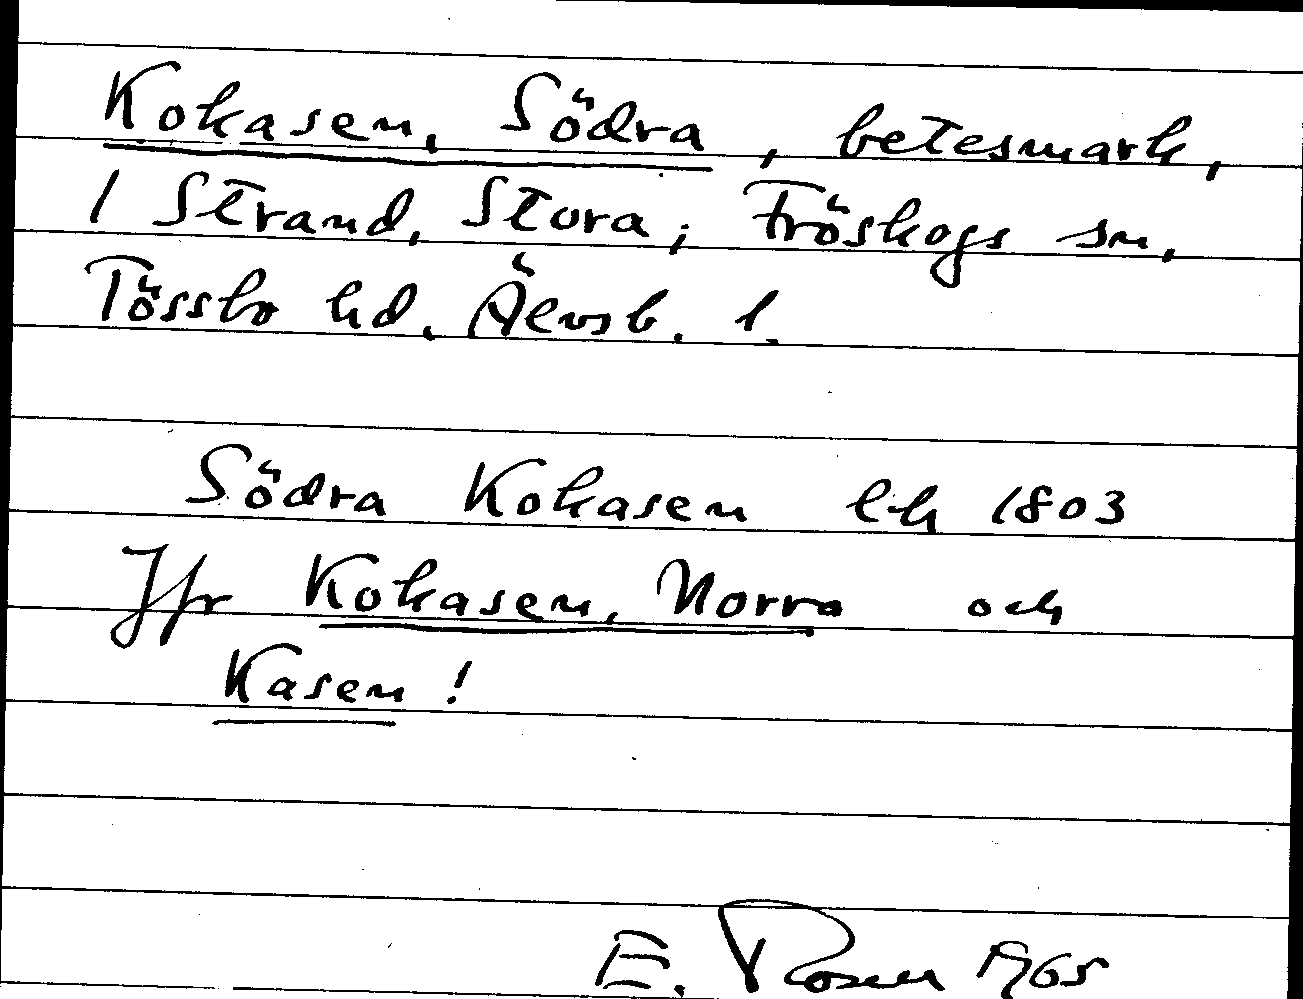 Kokasen, Södra, betesmark,
1 Strand, Stora, Fröskogs sn,
Tössbo hd. Älvsb. l.
Södra Kokasen lh 1803
Jfr Kokasen, Norra och
Kasen!
E. Rosen 1965